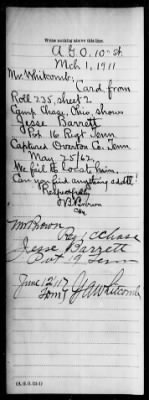 Write nothing above this line.
A.G.O. 10" St.
Mch 1, 1911
Mr. Whitcomb:
Card from
Roll 235, sheet 2.
Camp Chase, Ohio, shows
Jesse Barrett
Pvt 16 Regt Tenn
Captured Overton Co. Tenn
May 25/62.
We fail to locate him.
Can you find anything addtl
Respectfully
Brown
Mr Brown
C Chase
Jesse Barrett
Pvt 19 Tenn
June 12/17
J A Whitcomb